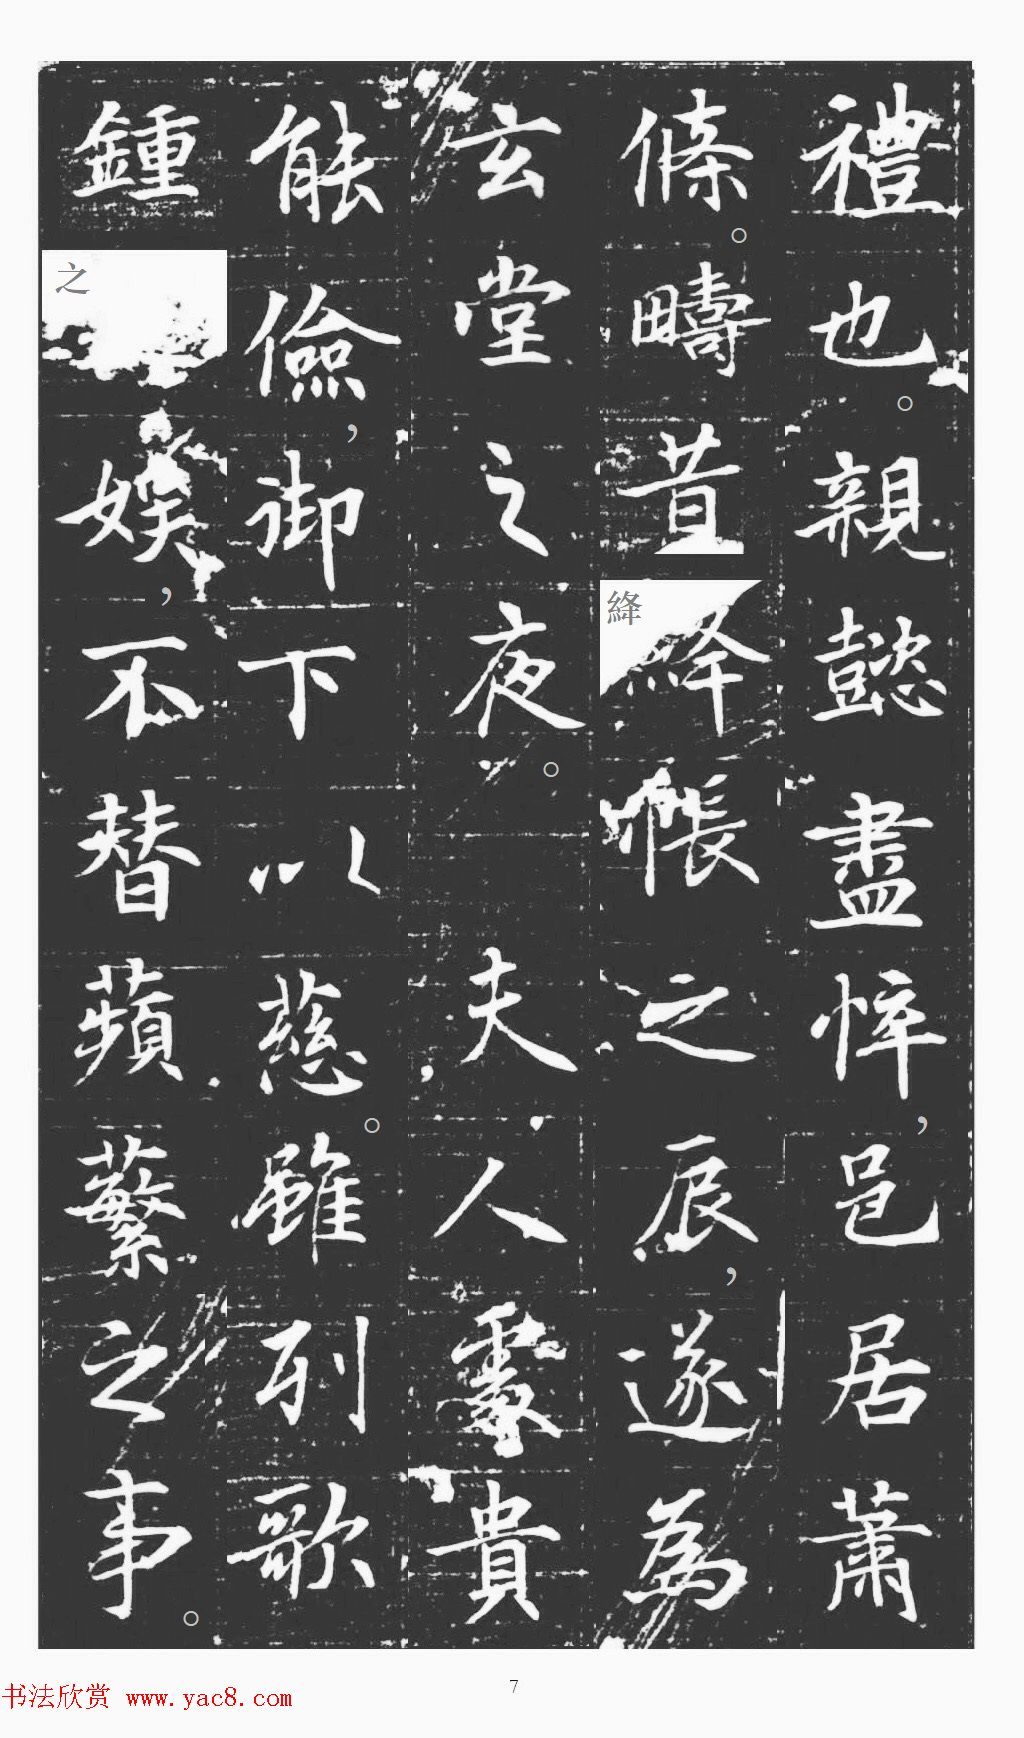 禮也。親懿盡悴，邑居蕭
條。疇昔絳帳之辰，遂為
玄堂之夜。夫人處貴
能儉，御下以慈。雖列歌
鍾之娛，不替蘋蘩之事。
之
絳
7
书法欣赏 www.yac8.com